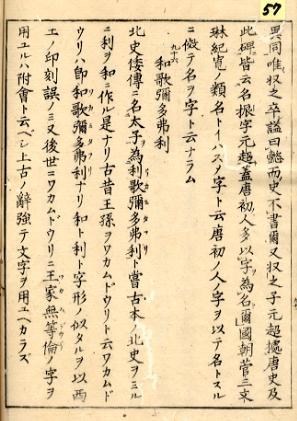 57
異同唯収之卒諡曰懿而史不書爾又収之子元超據唐史及
此碑皆云名振字元超蓋唐初人多以字為名爾國朝菅三耒
琳紀寛ノ類名トイハスノ字ト云唐初ノ人ノ字ヲ以テ名トスル
ニ倣テ名ヲ字ト云ナラム
九十六
和歌彌多弗利
北史倭傳ニ名太子為利歌彌多弗利ト嘗古本ノ北史ヲミル
ニ利ヲ和ニ作ル是ナリ古昔王孫ヲワカムドウリト云ワカムド
ウリハ即和歌彌多弗利ナリ和ト利ト字形ノ似タルヲ以西
土ノ印刻誤ノミ又後世ニワカムドウリニ王家無等倫ノ字ヲ
用ユルハ附會ト云ベシ上古ノ辭強テ文字ヲ用ユヘカラズ